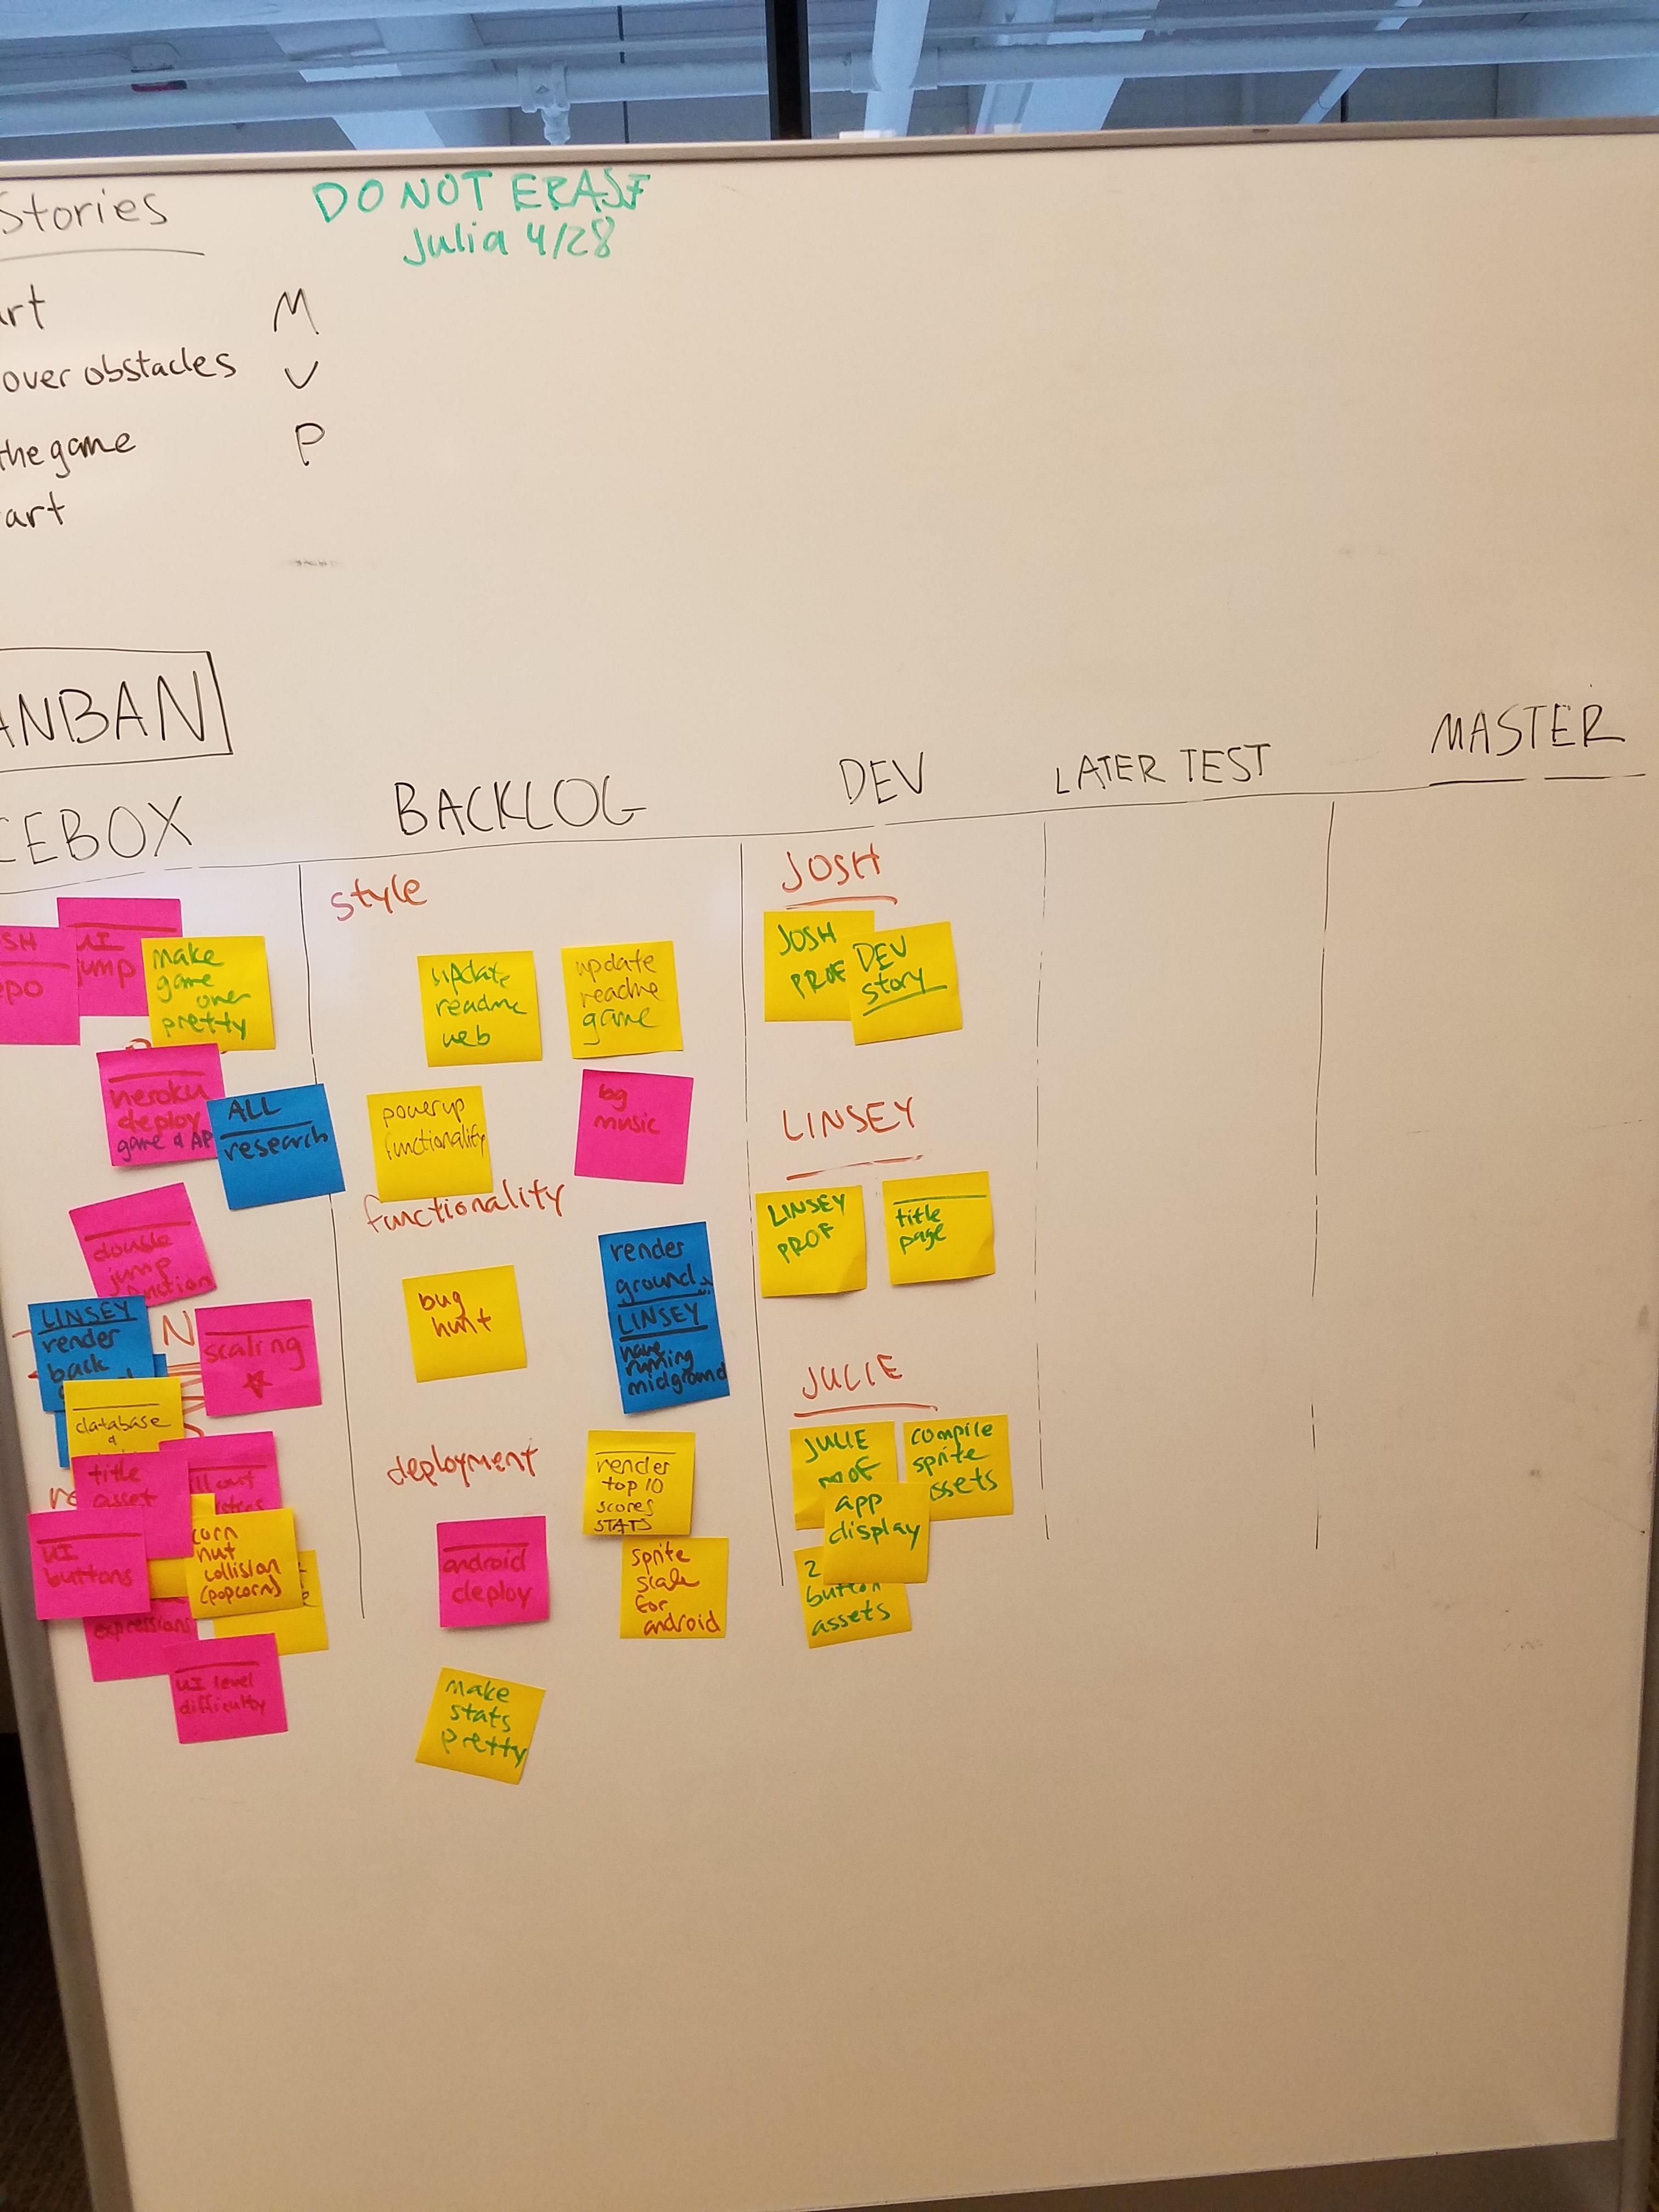 Stories
DO NOT ERASE
Julia 4/28
M
over obstacles
V
the game
P
art
ANBAN
CEBOX
BACKLOG
DEV
LATER TEST
MASTER
UI
jump
make
game
over
pretty
heroku
deploy
game & AP
ALL
research
double
jump
LINSEY
render
back
scaling
database
&
title
asset
UI
buttons
corn
nut
collision
(popcorn)
expressions
UI level
difficulty
style
update
readme
web
update
readme
game
powerup
functionality
bg
music
functionality
bug
hunt
render
ground
LINSEY
have
running
midground
deployment
render
top 10
scores
STATS
android
deploy
sprite
scale
for
android
make
stats
pretty
JOSH
JOSH
PROF
DEV
story
LINSEY
LINSEY
PROF
title
page
JULIE
JULIE
compile
sprite
app
display
2
button
assets